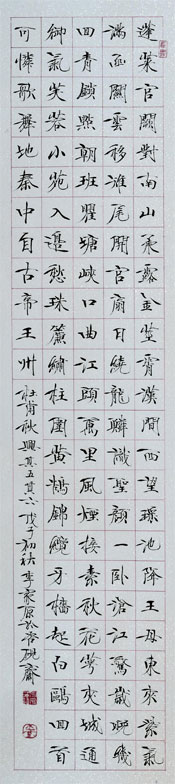 蓬萊宮闕對南山承露金莖霄漢間西望瑤池降王母東來紫氣
滿函關雲移雉尾開宮扇日繞龍鱗識聖顏一臥滄江驚歲晚幾
回青鎖點朝班瞿塘峽口曲江頭萬里風煙接素秋花萼夾城通
御氣芙蓉小苑入邊愁珠簾繡柱圍黃鵠錦纜牙檣起白鷗回首
可憐歌舞地秦中自古帝王州杜甫秋興其五其六戊子初秋李家原於硯齋